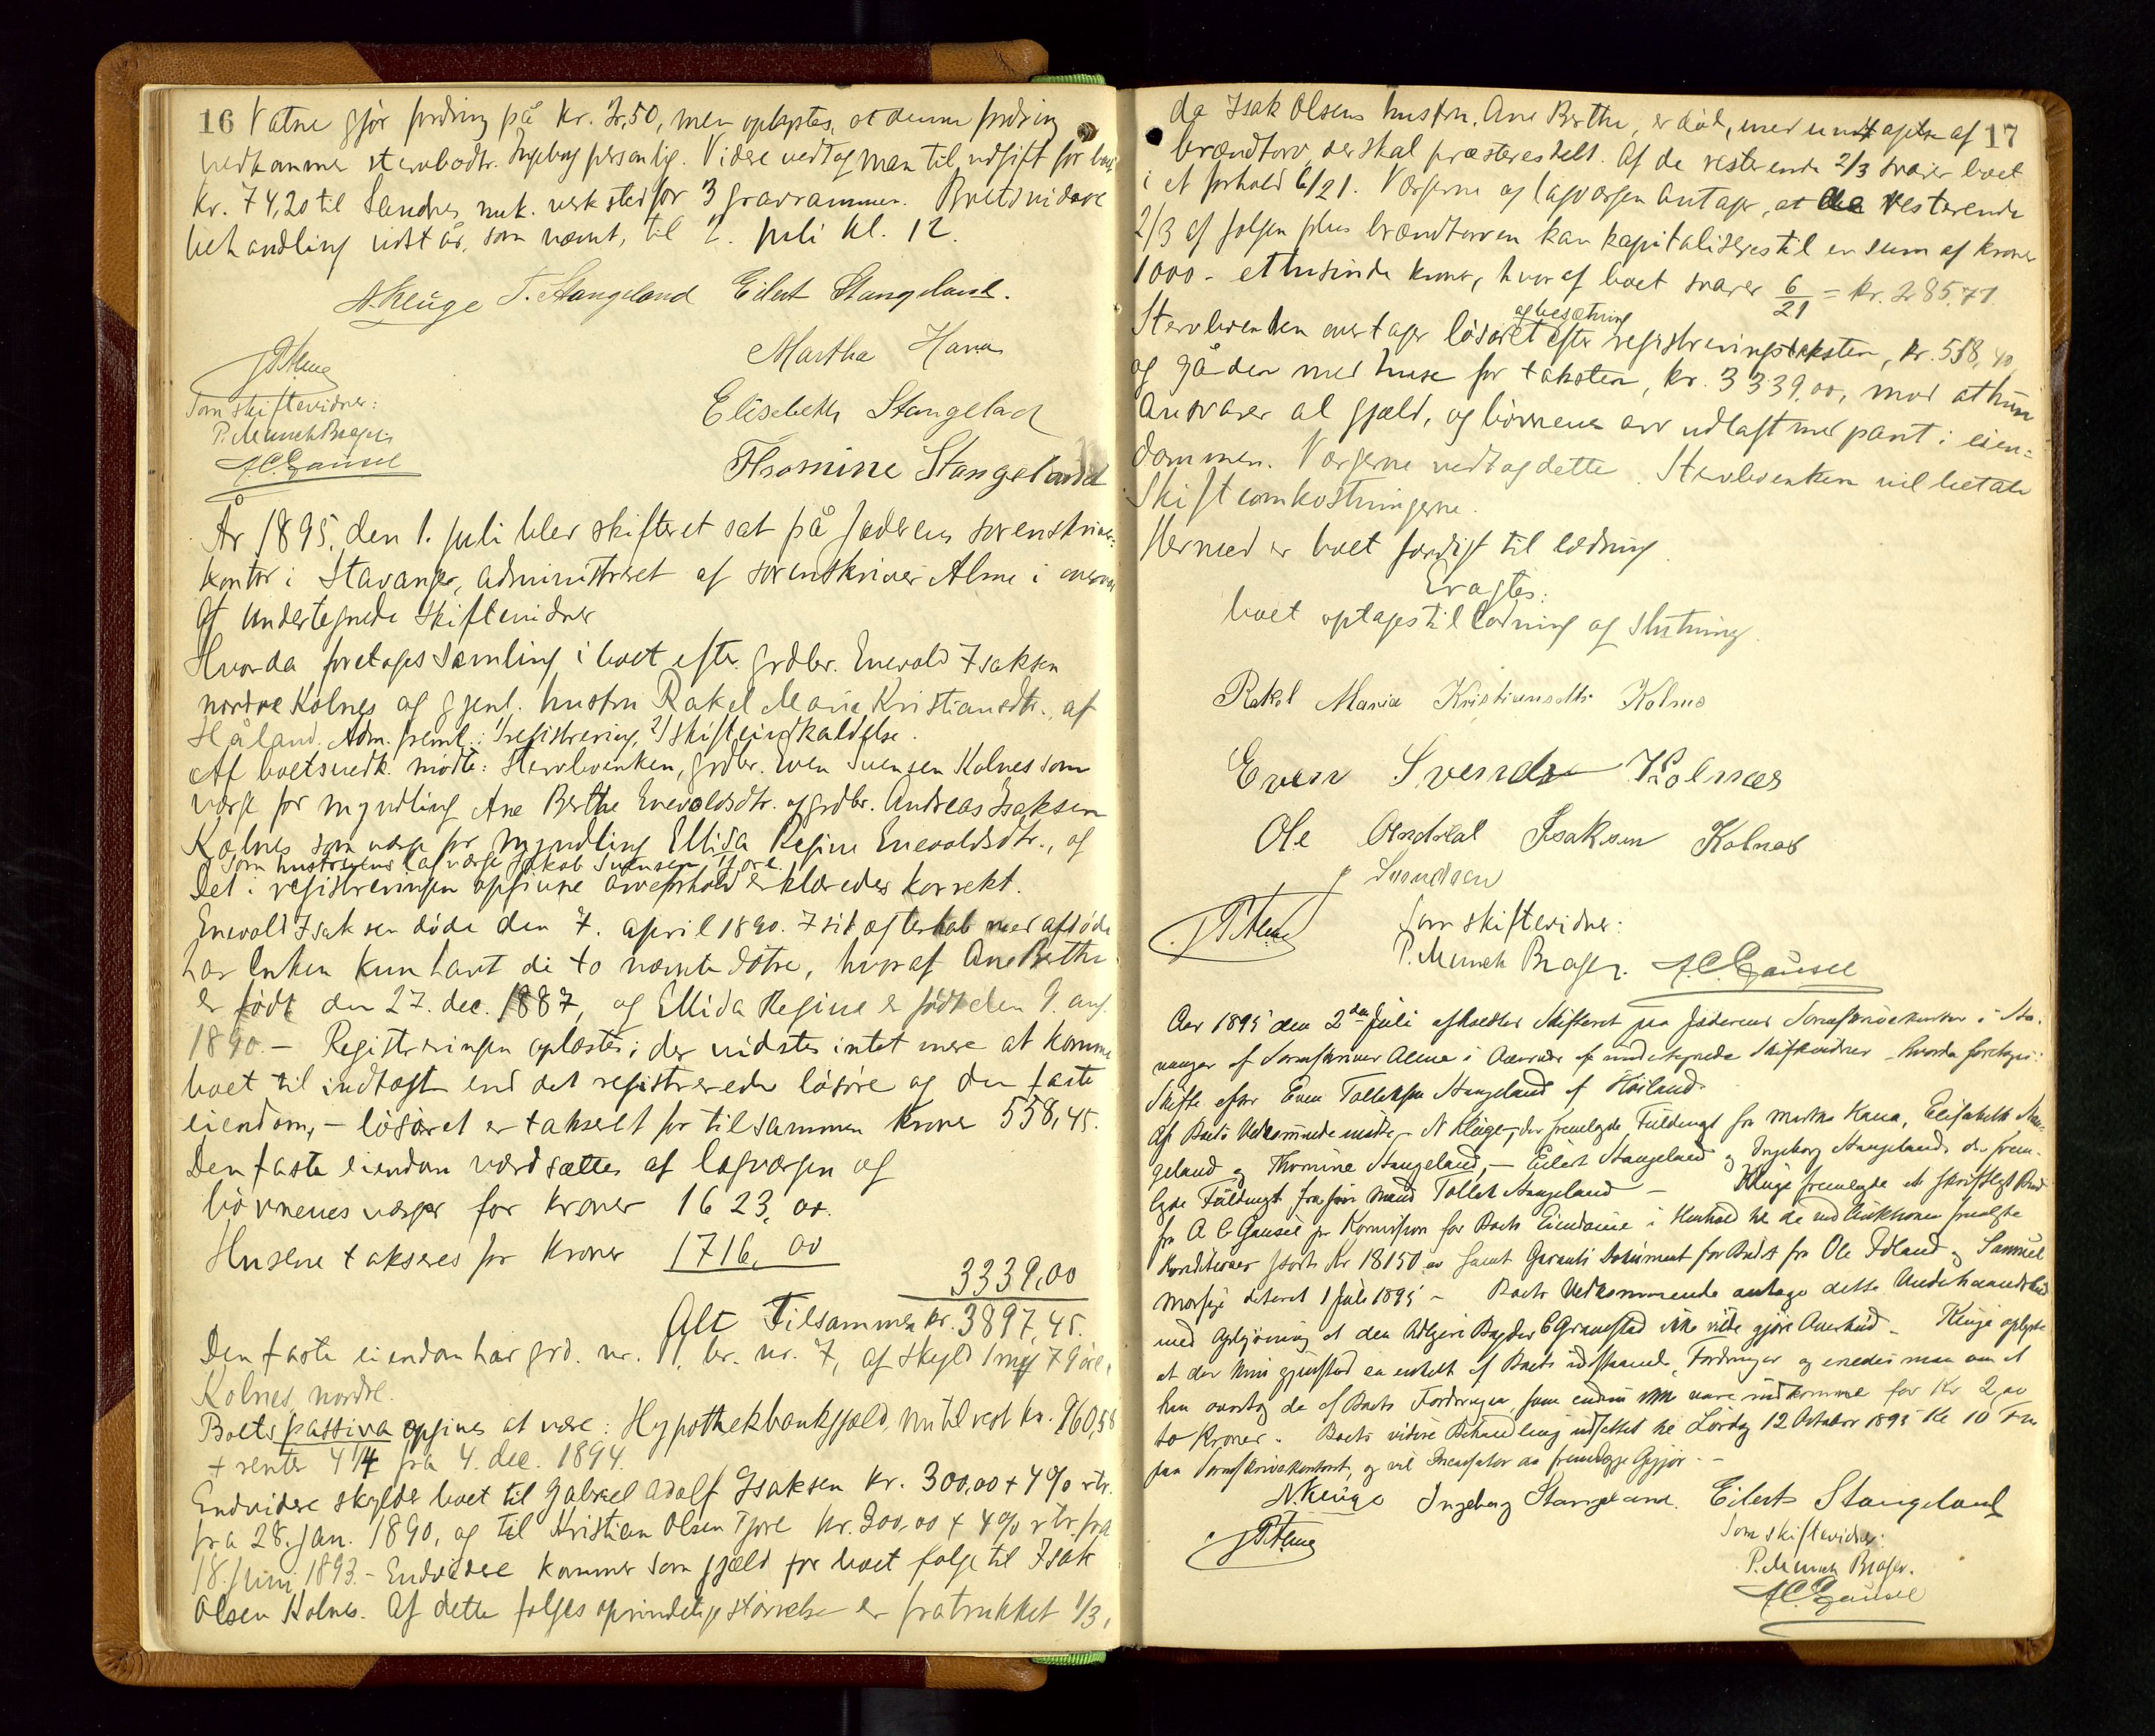 16 Vatne gjør fordring på kr. 2,50, men oplystes, at denne fordring
vedkommer stervbodtr. Ingeborg personlig. Videre vedtog man til udgift for boet
kr. 74,20 til Sandnes mek. verksted for 3 gravrammer. Boets videre
behandling udstår, som nævnt, til 2. juli kl. 12.
N. Kluge T. Stangeland Eilert Stangeland.
Martha Hana
Elisebeth Stangelad
Thomine Stangeland
Som skiftevidner:
P. Munch Brager
A C Gausel
År 1895, den 1. juli blev skifteret sat på Jæderens sorenskriver-
kontor i Stavanger, administreret af sorenskriver Alme i overvær
af undertegnede skiftevidner
Hvorda foretoges samling i boet efter grdbr. Enevold Isaksen
nordre Kolnes og gjenl. hustru Rakel Marie Kristiansdtr. af
Håland. Adm. freml.: 1/ registrering, 2/ skifteindkaldelse.
Af boets vedk. mødte: Stervboenken, grdbr. Even Svensen Kolnes som
verge for myndling Ane Berthe Enevoldsdtr. og grdbr. Andreas Isaksen
Kolnes som verge for myndling Ellida Regine Enevoldsdtr., og
som hustruens lagverge Jakob Svensen Tjore
Det i registreringen opgivne arveforhold erklæredes korrekt.
Enevold Isaksen døde den 7. april 1890. I sit ægteskab med afdøde
har Enken kun havt de to nævnte døtre, hvoraf Ane Berthe
er født den 27. dec. 1887, og Ellida Regine er født den 9. aug.
1890. – Registreringen oplæstes; der vidstes intet mere at komme
boet til indtægt end det registrerede løsøre og den faste
eiendom, – løsøret er takseret for tilsammen kroner 558,45.
Den faste eiendom værdsættes af lagværgen og
børnenes verger for kroner 1623,00.
Husene takseres for kroner 1716,00
3339,00
Alt Tilsammen kr. 3897,45.
Den faste eiendom har grd. nr. 11, br. nr. 7, af skyld 1 my 79 øre,
Kolnes, nordre.
Boets passiva opgives at være: Hypothekbankgjæld, nu til rest kr. 960,58
+ renter 4 1/4 fra 4. dec. 1894.
Endvidere skylder boet til Gabriel Adolf Isaksen kr. 300,00 + 4% rtr.
fra 28. jan. 1890, og til Kristian Olsen Tjore kr. 200,00 + 4% rtr. fra
18. juni 1893. – Endvidere kommer som gjæld for boet følge til Isak
Olsen Kolnes. Af dette følges oprindelige størrelse er fratrukket 1/3,
17
da Isak Olsens hustru, Ane Berthe, er død, med undtagelse af
brændtorv, der skal præsteres helt. Af de resterende 2/3 svarer boet
i et forhold 6/21. Vergerne og lagvergen antager, at de resterende
2/3 af følgen plus brændtorven kan kapitaliseres til en sum af kroner
1000 – ettusinde kroner, hvoraf boet svarer 6/21 = kr. 285,71
og besætning
Stervboenken overtager løsøret efter registreringstaksten, kr. 558,40,
og gården med huse for taksten, kr. 3339,00, mod at hun
ansvarer al gjæld, og børnenes arv udlagt med pant i eien-
dommen. Vergerne vedtog dette. Stervboenken vil betale
skifteomkostningerne.
Hermed er boet færdigt til lodning
Eragtes:
boet optages til lodning og slutning.
Rakel Maria Kristiansdtr Kolnes
Even Svendsen Kolnæs
Ole Andreal Isaksen Kolnes
J Svendsen
Som skiftevidner:
P. Munch Brager. A. C. Gausel
Aar 1895 den 2den Juli afholdtes Skifteret paa Jæderens Sorenskriverkontor i Sta-
vanger af Sorenskriver Alme i Overvær af undertegnede Skiftevidner – hvorda foretoges:
Skifte efter Even Tollefsen Stangeland af Høiland.
Af Boets Vedkommende mødte – N Kluge, der fremlagde Fuldmagt fra Martha Hana, Elisabeth Stan-
geland og Thomine Stangeland, – Eilert Stangeland og Ingeborg Stangeland, der frem-
lagde Fuldmagt fra sin Mand Tollef Stangeland – Kluge fremlagde et skriftligt Bud
fra A C Gausel pr Kommission for Boets Eiendomme i Henhold til de ved Auktionen fremlagte
Konditioner stort Kr 18150,00 samt Garanti Dokument for Budet fra Ole Idland og Samuel
dateret 1 Juli 1895 – Boets Vedkommende antoge dette Underhaandsbud
med Oplysning at den ikke vilde gjøre Overbud – Kluge oplyste
at der kun gjenstod en enkelt af Boets udestaaende Fordringer og enedes man om at
han overtog de af Boets Fordringer som endnu ikke vare indkomne for Kr 2,00
to Kroner. Boets videre Behandling udsattes til Lørdag 12 Oktober 1895 Kl 10 Fm
paa Sorenskriverkontoret, og vil Incassator da fremlægge Opgjør. –
N. Kluge Ingeborg Stangeland. Eilert Stangeland
Som skiftevidner:
P. Munch Brager.
A C Gausel